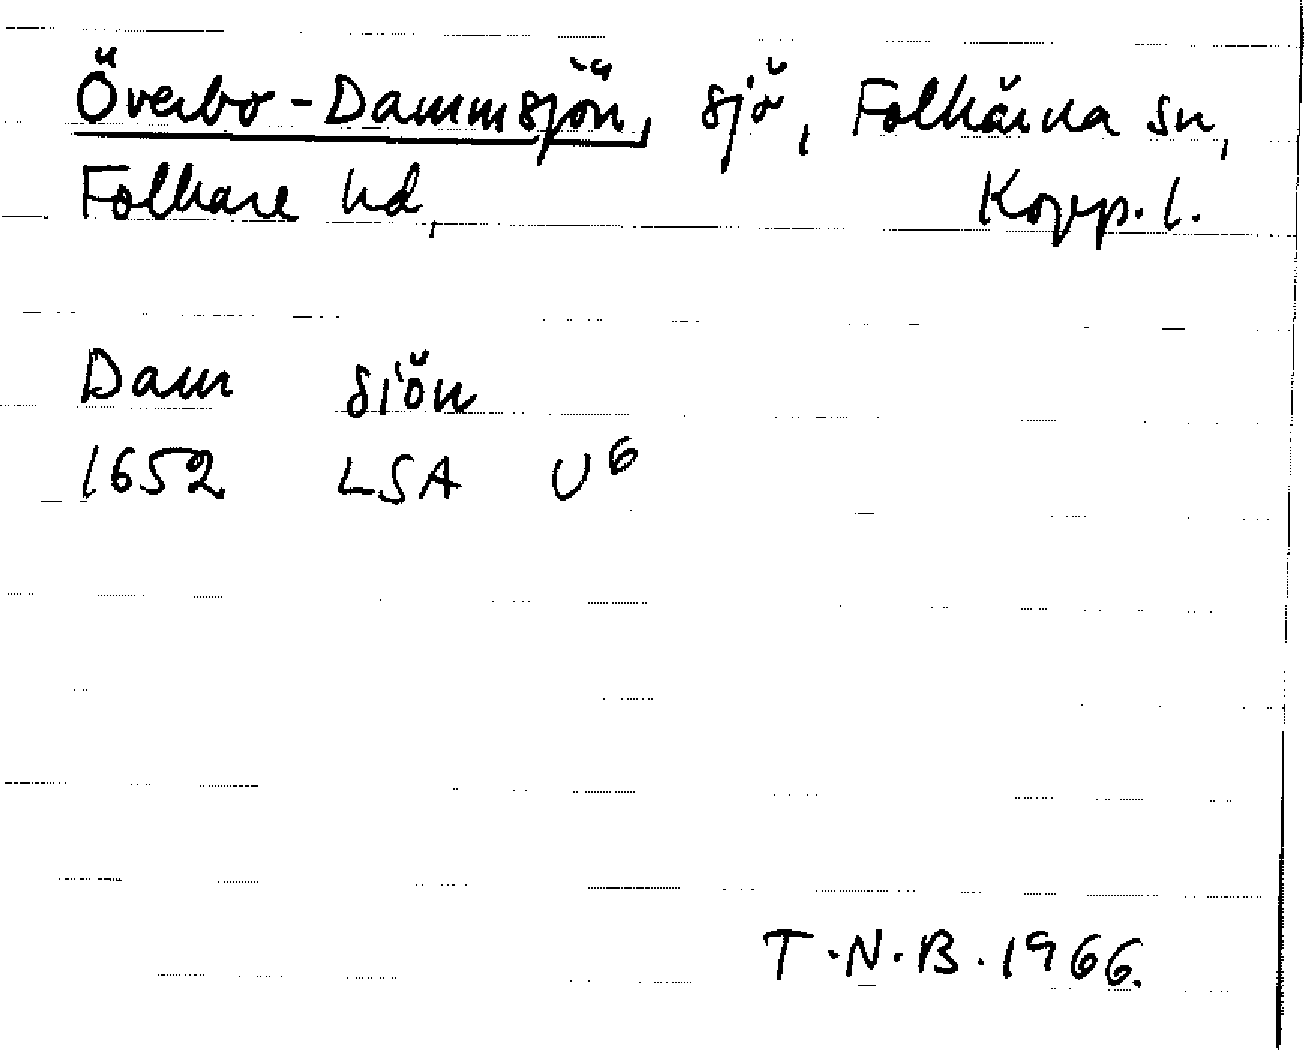 Överbo-Dammsjön, sjö, Folkärna sn,
Folkare hd, Kopp. l.
Dam siön
1652 LSA U6
T.N.B. 1966.